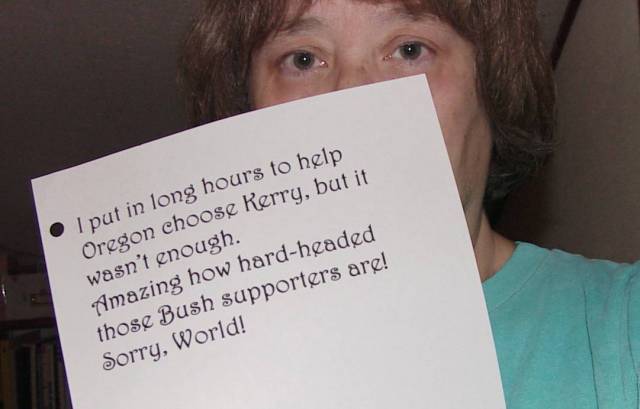 I put in long hours to help
Oregon choose Kerry, but it
wasn't enough.
Amazing how hard-headed
those Bush supporters are!
Sorry, World!